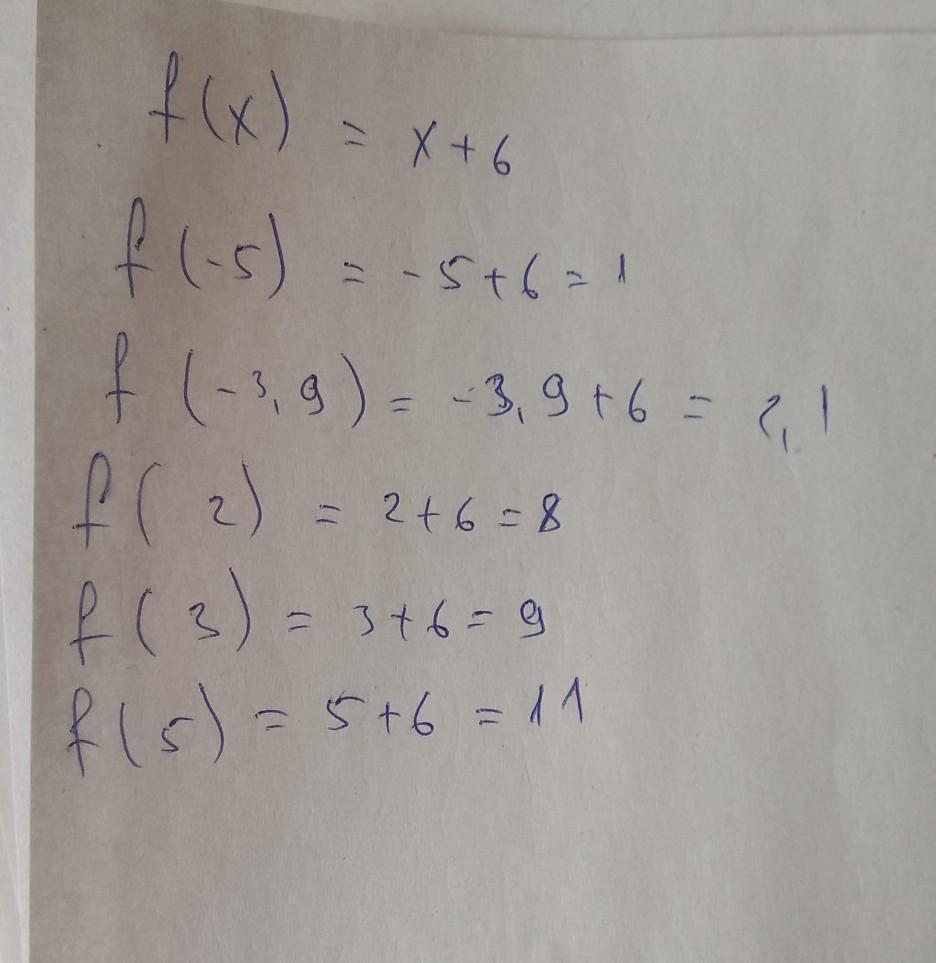 f(x) = x+6
f(-5) = -5+6=1
f(-3,9) = -3,9+6 = 2,1
f(2) = 2+6=8
f(3) = 3+6=9
f(5) = 5+6 =11